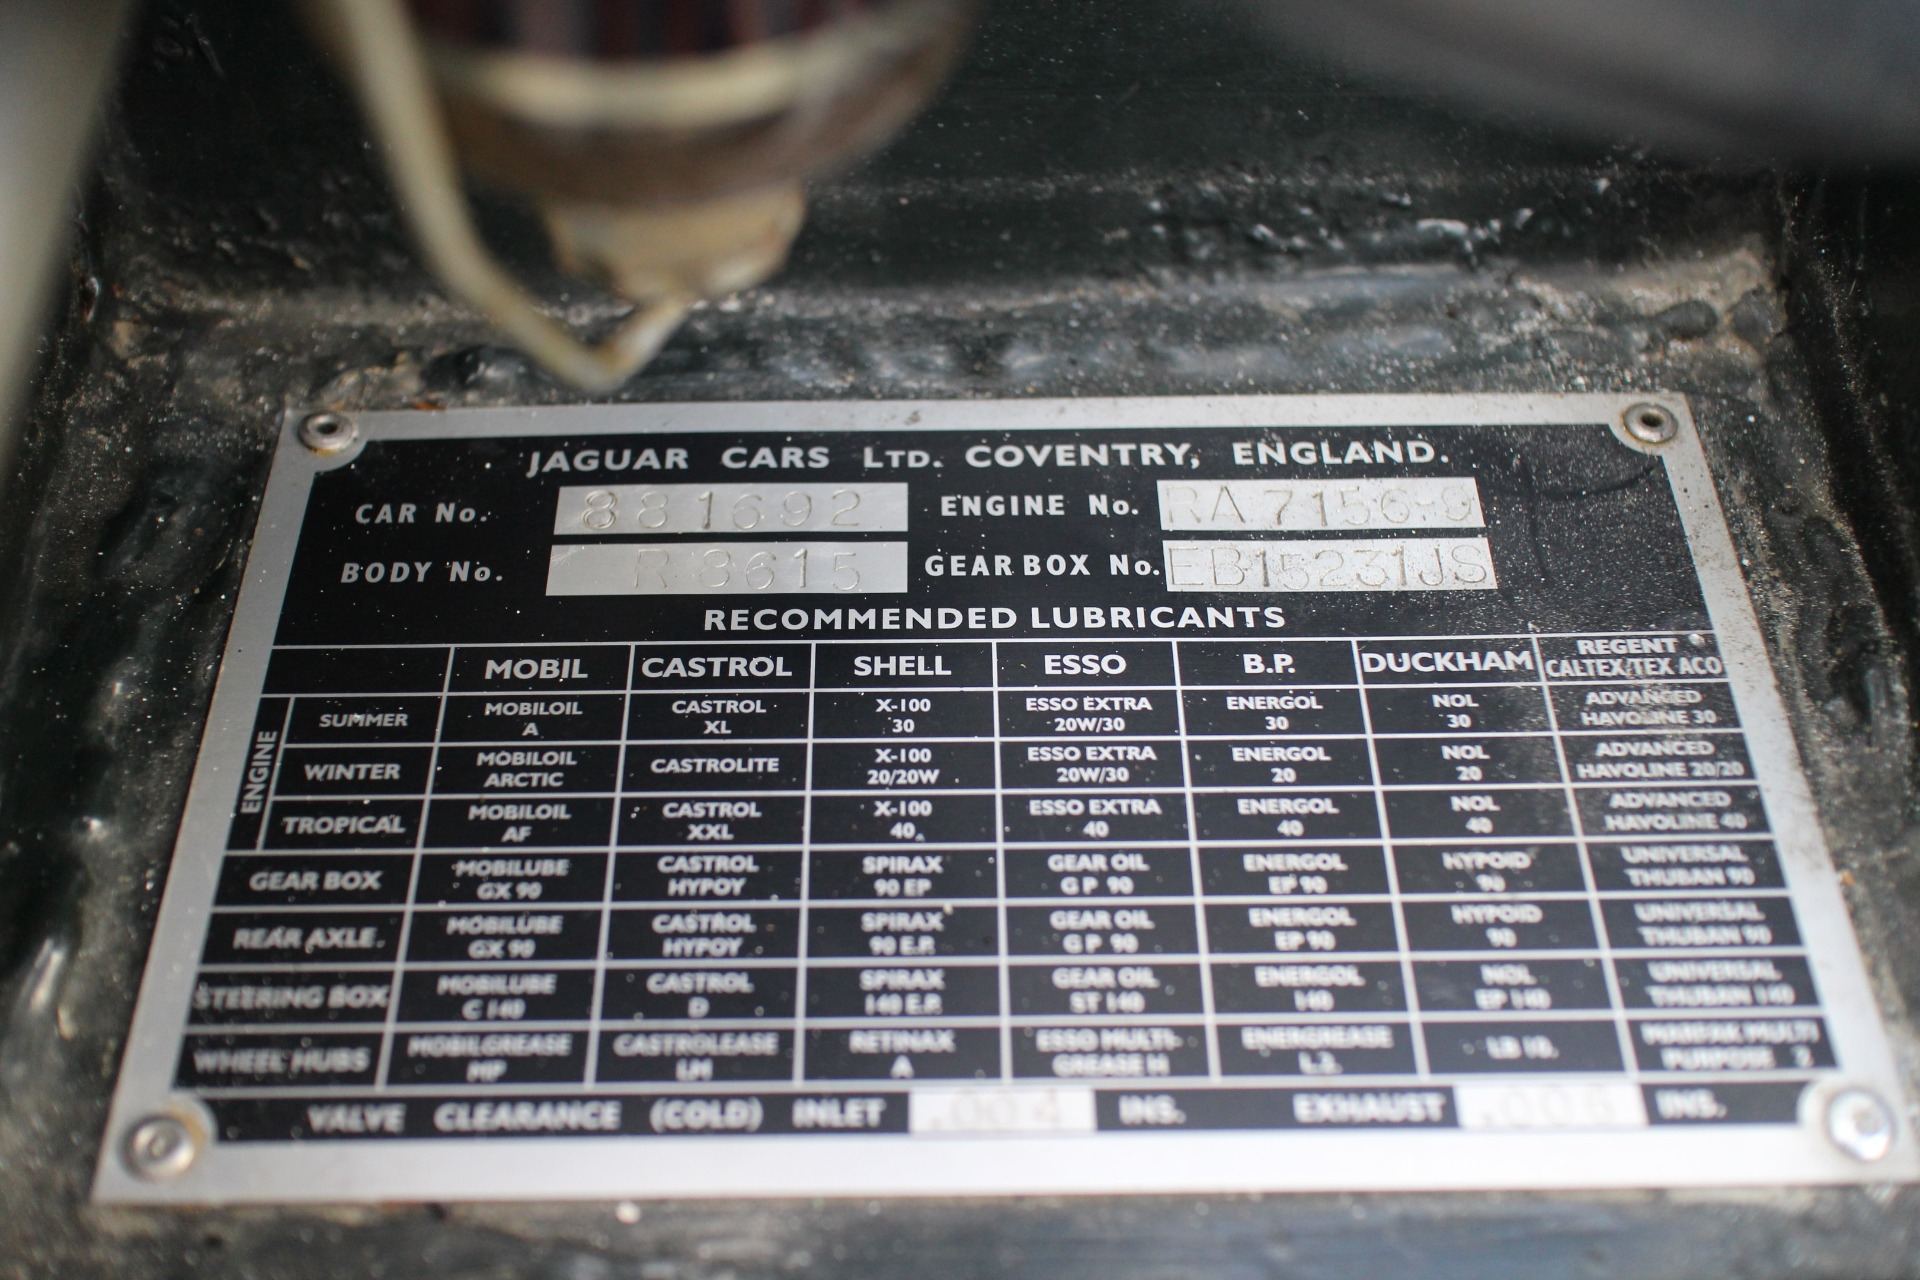 JAGUAR CARS LTD. COVENTRY, ENGLAND.
CAR No. 881692 ENGINE No. RA 7156-9
BODY No. R 8615 GEAR BOX No. EB15231JS
RECOMMENDED LUBRICANTS
MOBIL CASTROL SHELL ESSO B.P. DUCKHAM REGENT CALTEX/TEXACO
ENGINE
SUMMER MOBILOIL A CASTROL XL X-100 30 ESSO EXTRA 20W/30 ENERGOL 30 NOL 30 ADVANCED HAVOLINE 30
WINTER MOBILOIL ARCTIC CASTROLITE X-100 20/20W ESSO EXTRA 20W/30 ENERGOL 20 NOL 20 ADVANCED HAVOLINE 20/20
TROPICAL MOBILOIL AF CASTROL XXL X-100 40 ESSO EXTRA 40 ENERGOL 40 NOL 40 ADVANCED HAVOLINE 40
GEAR BOX MOBILUBE GX 90 CASTROL HYPOY SPIRAX 90 EP GEAR OIL GP 90 ENERGOL EP 90 HYPOID 90 UNIVERSAL THUBAN 90
REAR AXLE MOBILUBE GX 90 CASTROL HYPOY SPIRAX 90 E.P. GEAR OIL GP 90 ENERGOL EP 90 HYPOID 90 UNIVERSAL THUBAN 90
STEERING BOX MOBILUBE C 140 CASTROL D SPIRAX 140 E.P. GEAR OIL ST 140 ENERGOL 140 NOL EP 140 UNIVERSAL THUBAN 140
WHEEL HUBS MOBILGREASE MP CASTROLEASE LM RETINAX A ESSO MULTI-GREASE H ENERGREASE L.2. LB 10. MARFAK MULTI PURPOSE 2
VALVE CLEARANCE (COLD) INLET .004 INS. EXHAUST .006 INS.